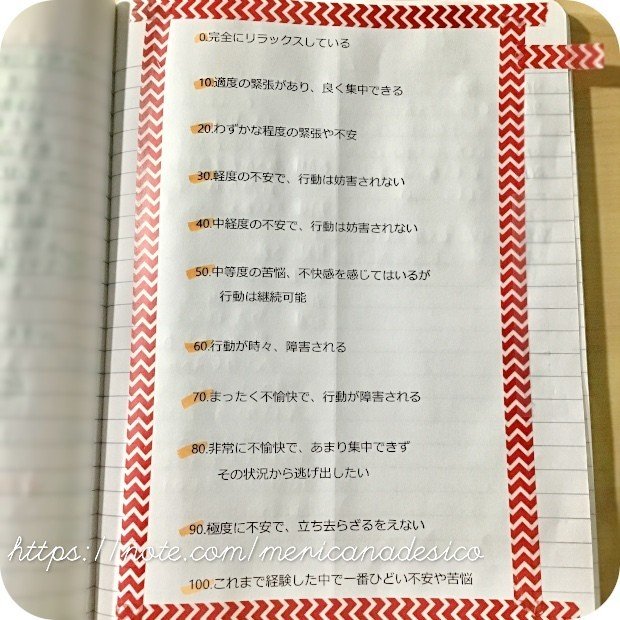 0.完全にリラックスしている
10.適度の緊張があり、良く集中できる
20.わずかな程度の緊張や不安
30.軽度の不安で、行動は妨害されない
40.中経度の不安で、行動は妨害されない
50.中等度の苦悩、不快感を感じてはいるが
行動は継続可能
60.行動が時々、障害される
70.まったく不愉快で、行動が障害される
80.非常に不愉快で、あまり集中できず
その状況から逃げ出したい
90.極度に不安で、立ち去らざるをえない
https://note.com/menicanadesico
100.これまで経験した中で一番ひどい不安や苦悩